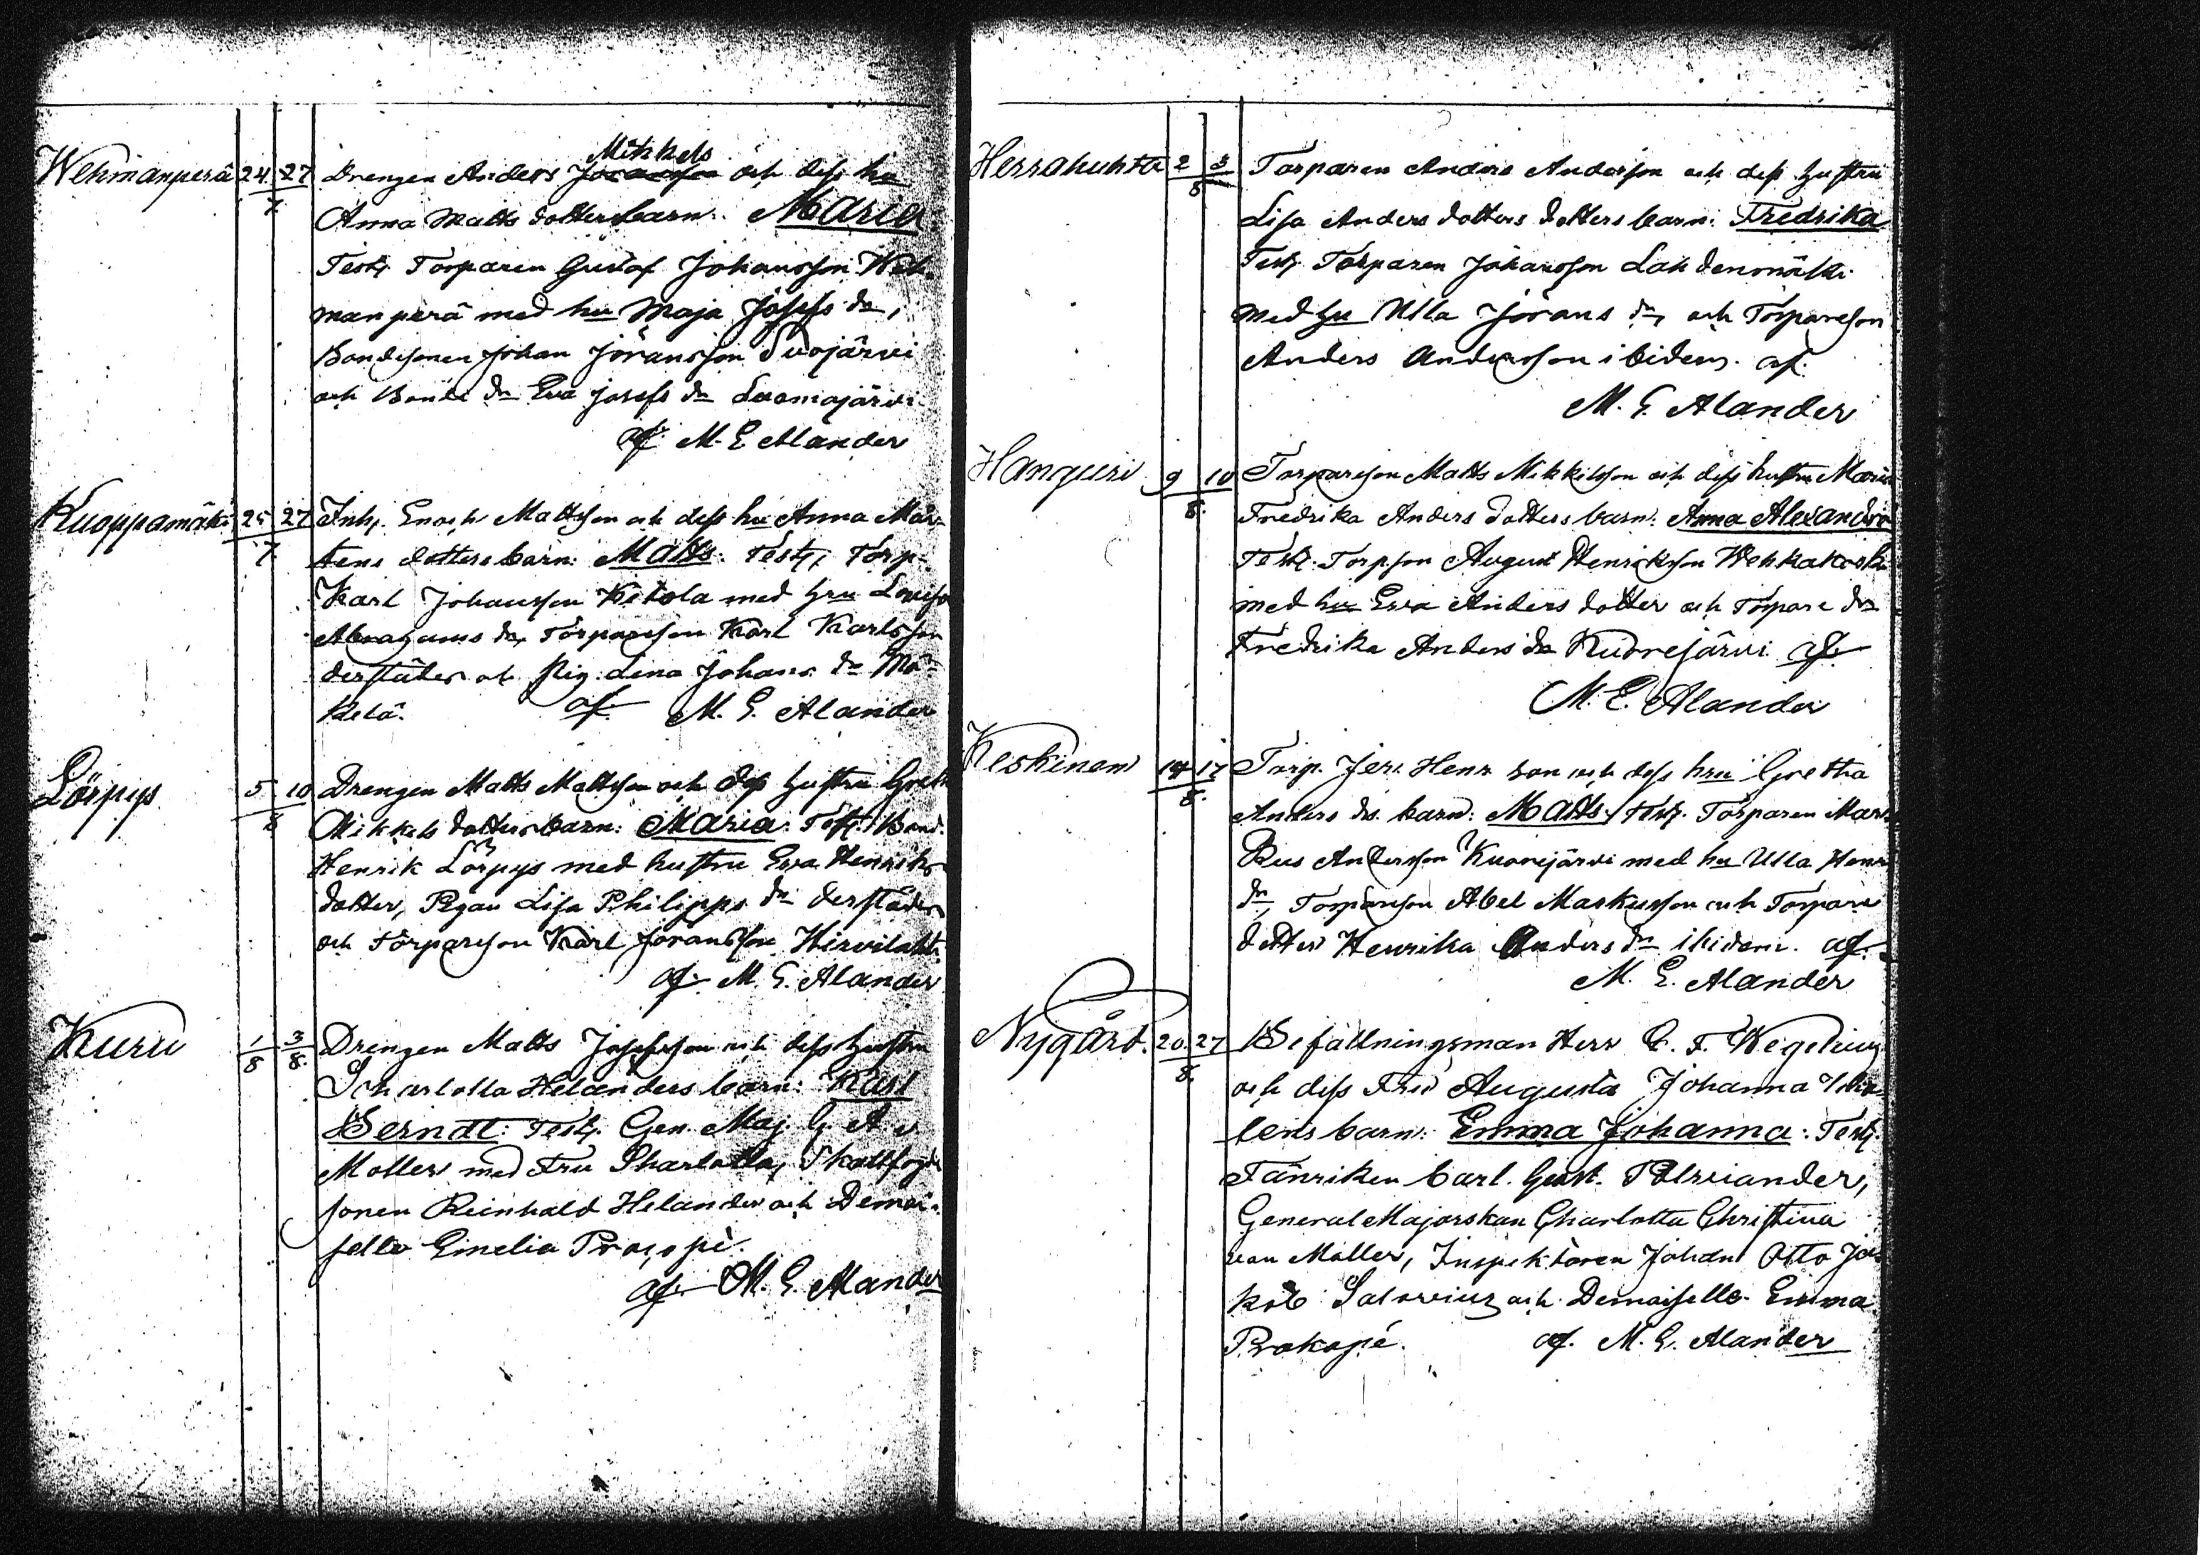 Wehmanperä 24 27/7 Drengen Anders Mikkels och dess hu
Anna Matts dotters barn: Maria
Test. Torparen Gustaf Johansson Weh-
manperä med hu Maja Josefs dr,
Bondesonen Johan Jöransson Suojärvi
och Bonde dr Eva Josefs dr Luomajärvi
af M. E. Alander
Kuoppamäki 25 27/7 Inh. Enoch Mattsson och dess hu Anna Mår-
tens dotters barn: Matts. Test. Torp.
Karl Johansson Ketola med hru Lovisa
Abrahams dr, Torpareson Karl Karlsson
derstädes och Pig. Lena Johans dr Mä-
kelä. af M. E. Alander
Lörpys 5 10/8 Drengen Matts Mattsson och dess hustru Greth
Mikkels dotters barn: Maria. Test. Bond.
Henrik Lörpys med hustru Eva Henriks
dotter, Pigan Lisa Philipps dr derstädes
och Torpareson Karl Jöransson Hirvilaht.
af M. E. Alander
Kuru 1/8 3/8 Drengen Matts Josefsson och dess hustru
Scharlotta Helanders barn: Karl
Berndt: Test. Gen. Maj. G. A. v
Moller med Fru Sharlotta, Skattfogde
sonen Reinhold Helander och Demoi-
selle Emelia Procopé.
af M. E. Alander
Herrakuhta 2 3/8 Torparen Anders Andersson och dess hustru
Lisa Anders dotters dotters barn: Fredrika
Test. Torparen Johansson Lahdenmäki
med hu Ulla Jörans dr, och Torpareson
Anders Andersson ibidem. af
M. E. Alander
Hanguri 9 10/8 Torpareson Matts Mikkelsson och dess hustru Maria
Fredrika Anders dotters barn: Anna Alexandra
Test. Torpson August Henriksson Wehkakoski
med hu Eva Anders dotter och Torpare dr
Fredrika Anders dr Kuorejärvi af
M. E. Alander
Keskinen 14 17/8 Torp. Jer. Henr. son och dess hru Gretha
Anders drs barn: Matts. Test. Torparen Mar-
kus Andersson Kuorejärvi med hu Ulla Henr
dr, Torpareson Abel Markusson och Torpare
dotter Henrika Anders dr ibidem. af
M. E. Alander
Nygård. 20 27/8 Befallningsman Herr C. F. Wegelius
och dess Fru Augusta Johanna
lens barn: Emma Johanna: Test.
Fänriken Carl. Gust. Polviander,
General Majorskan Charlotta Christina
von Möller, Inspektoren Johan Otto Ja-
kob Salovius och Demoiselle Emma
Prokopé. af. M. E. Alander